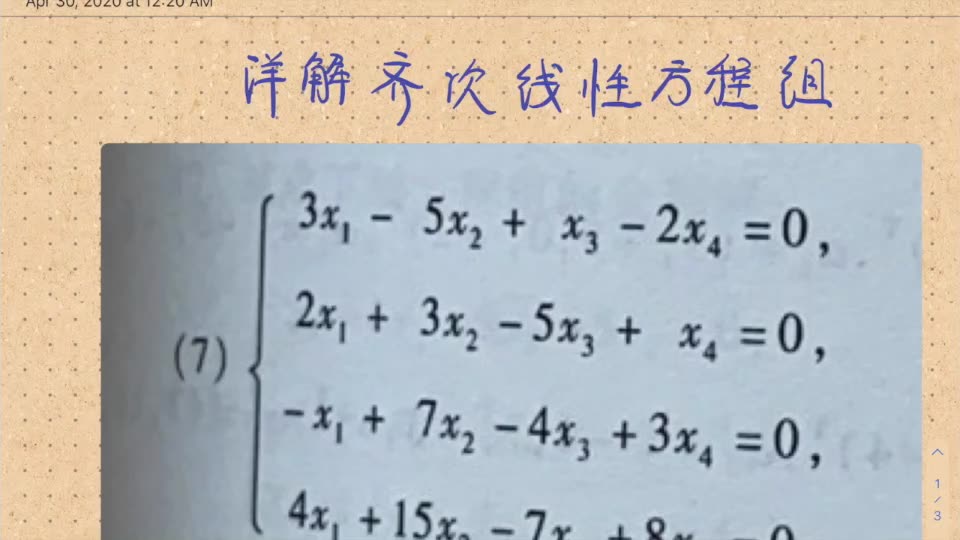 Apr 30, 2020 at 12:20 AM
详解齐次线性方程组
3x₁ - 5x₂ + x₃ - 2x₄ = 0,
2x₁ + 3x₂ - 5x₃ + x₄ = 0,
(7)
-x₁ + 7x₂ - 4x₃ + 3x₄ = 0,
4x₁ + 15x₂ - 7x₃ + 8x₄ = 0
1/3